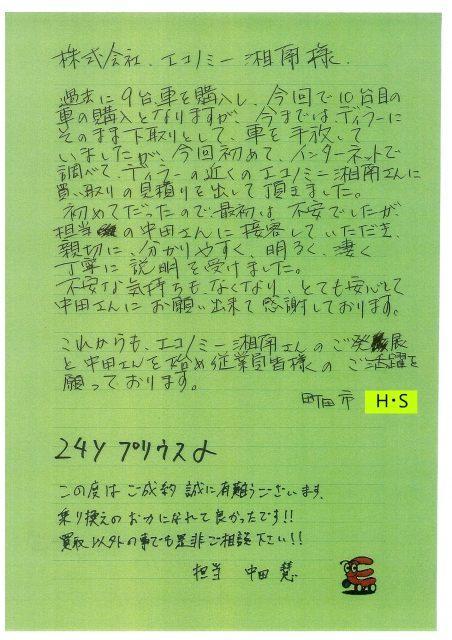 株式会社、エコノミー湘南様、
過去に9台、車を購入し、今回で10台目の
車の購入となりますが、今まではディラーに
そのまま下取りとして、車を手放して
いましたが、今回初めて、インターネットで
調べて、ディラーの近くのエコノミー湘南さんに
買い取りの見積りを出して頂きました。
初めてだったので最初は、不安でしたが、
担当の中田さんに接客していただき、
親切に、分かりやすく、明るく、凄く
丁寧に説明を受けました。
不安な気持ちもなくなり、とても安心して
中田さんにお願い出来て感謝しております。
これからも、エコノミー湘南さんのご発展
と中田さんを始め従業員皆様のご活躍を
願っております。
町田市 H・S
24y プリウスα
この度はご成約誠に有難うございます。
乗り換えのお力になれて良かったです!!
買取以外の事でも是非ご相談下さい!!
担当 中田 慧